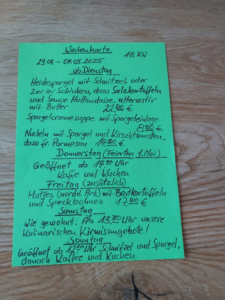 Wochenkarte
18. KW
29.04 - 05.05.2025
ab Dienstag
Heidespargel mit Schnitzel oder
zweierlei Schinken, dazu Salzkartoffeln
und Sauce Hollandaise, alternativ
mit Butter 22,90 €
Spargelcremesuppe mit Spargeleinlage
8,90 €
Nudeln mit Spargel und Kirschtomaten,
dazu fr. Parmesan 14,80 €
Donnerstag (Feiertag 1. Mai)
Geöffnet ab 14:00 Uhr
Kaffee und Kuchen
Freitag (zusätzlich)
Matjes (nord. Art) mit Bratkartoffeln
und Speckbohnen 17,80 €
Samstag
wie gewohnt. Ab Uhr unsere
Kulinarischen Kirmisangebote!
Sonntag
Geöffnet ab Uhr Schnitzel und Spargel,
danach Kaffee und Kuchen.